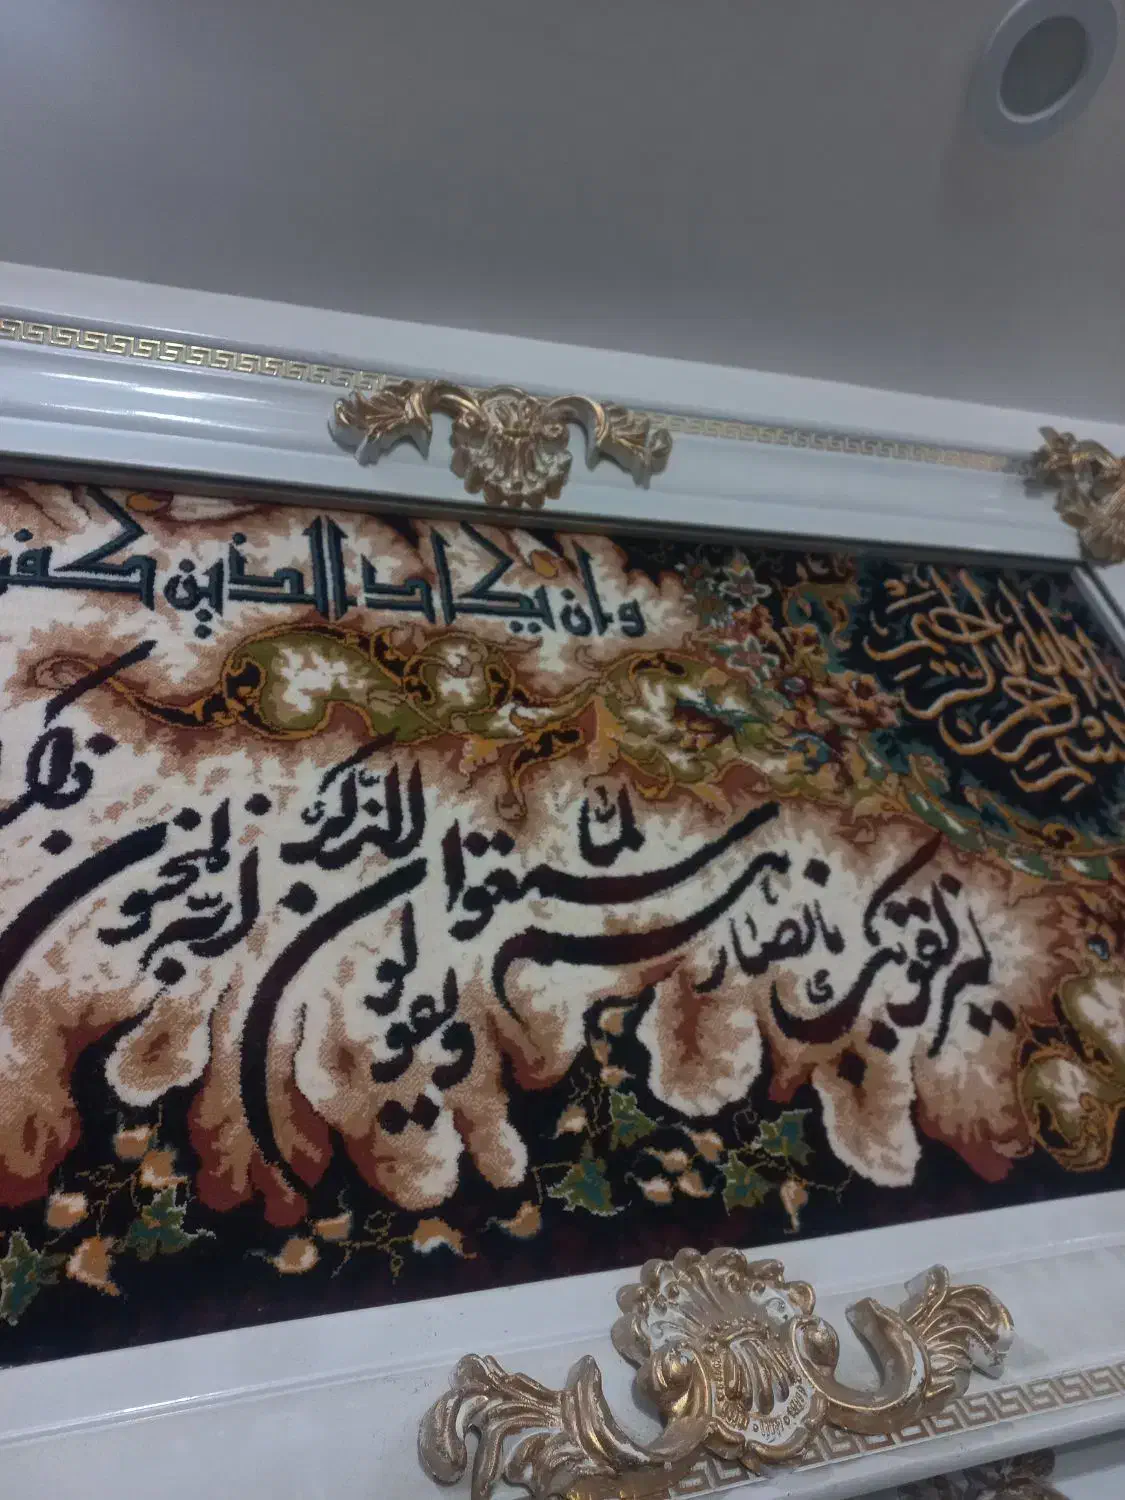 بسم الله الرحمن الرحيم
وان يكاد الذين كفر
ليزلقونك بابصارهم لما سمعوا الذكر ويقولون انه لمجنون